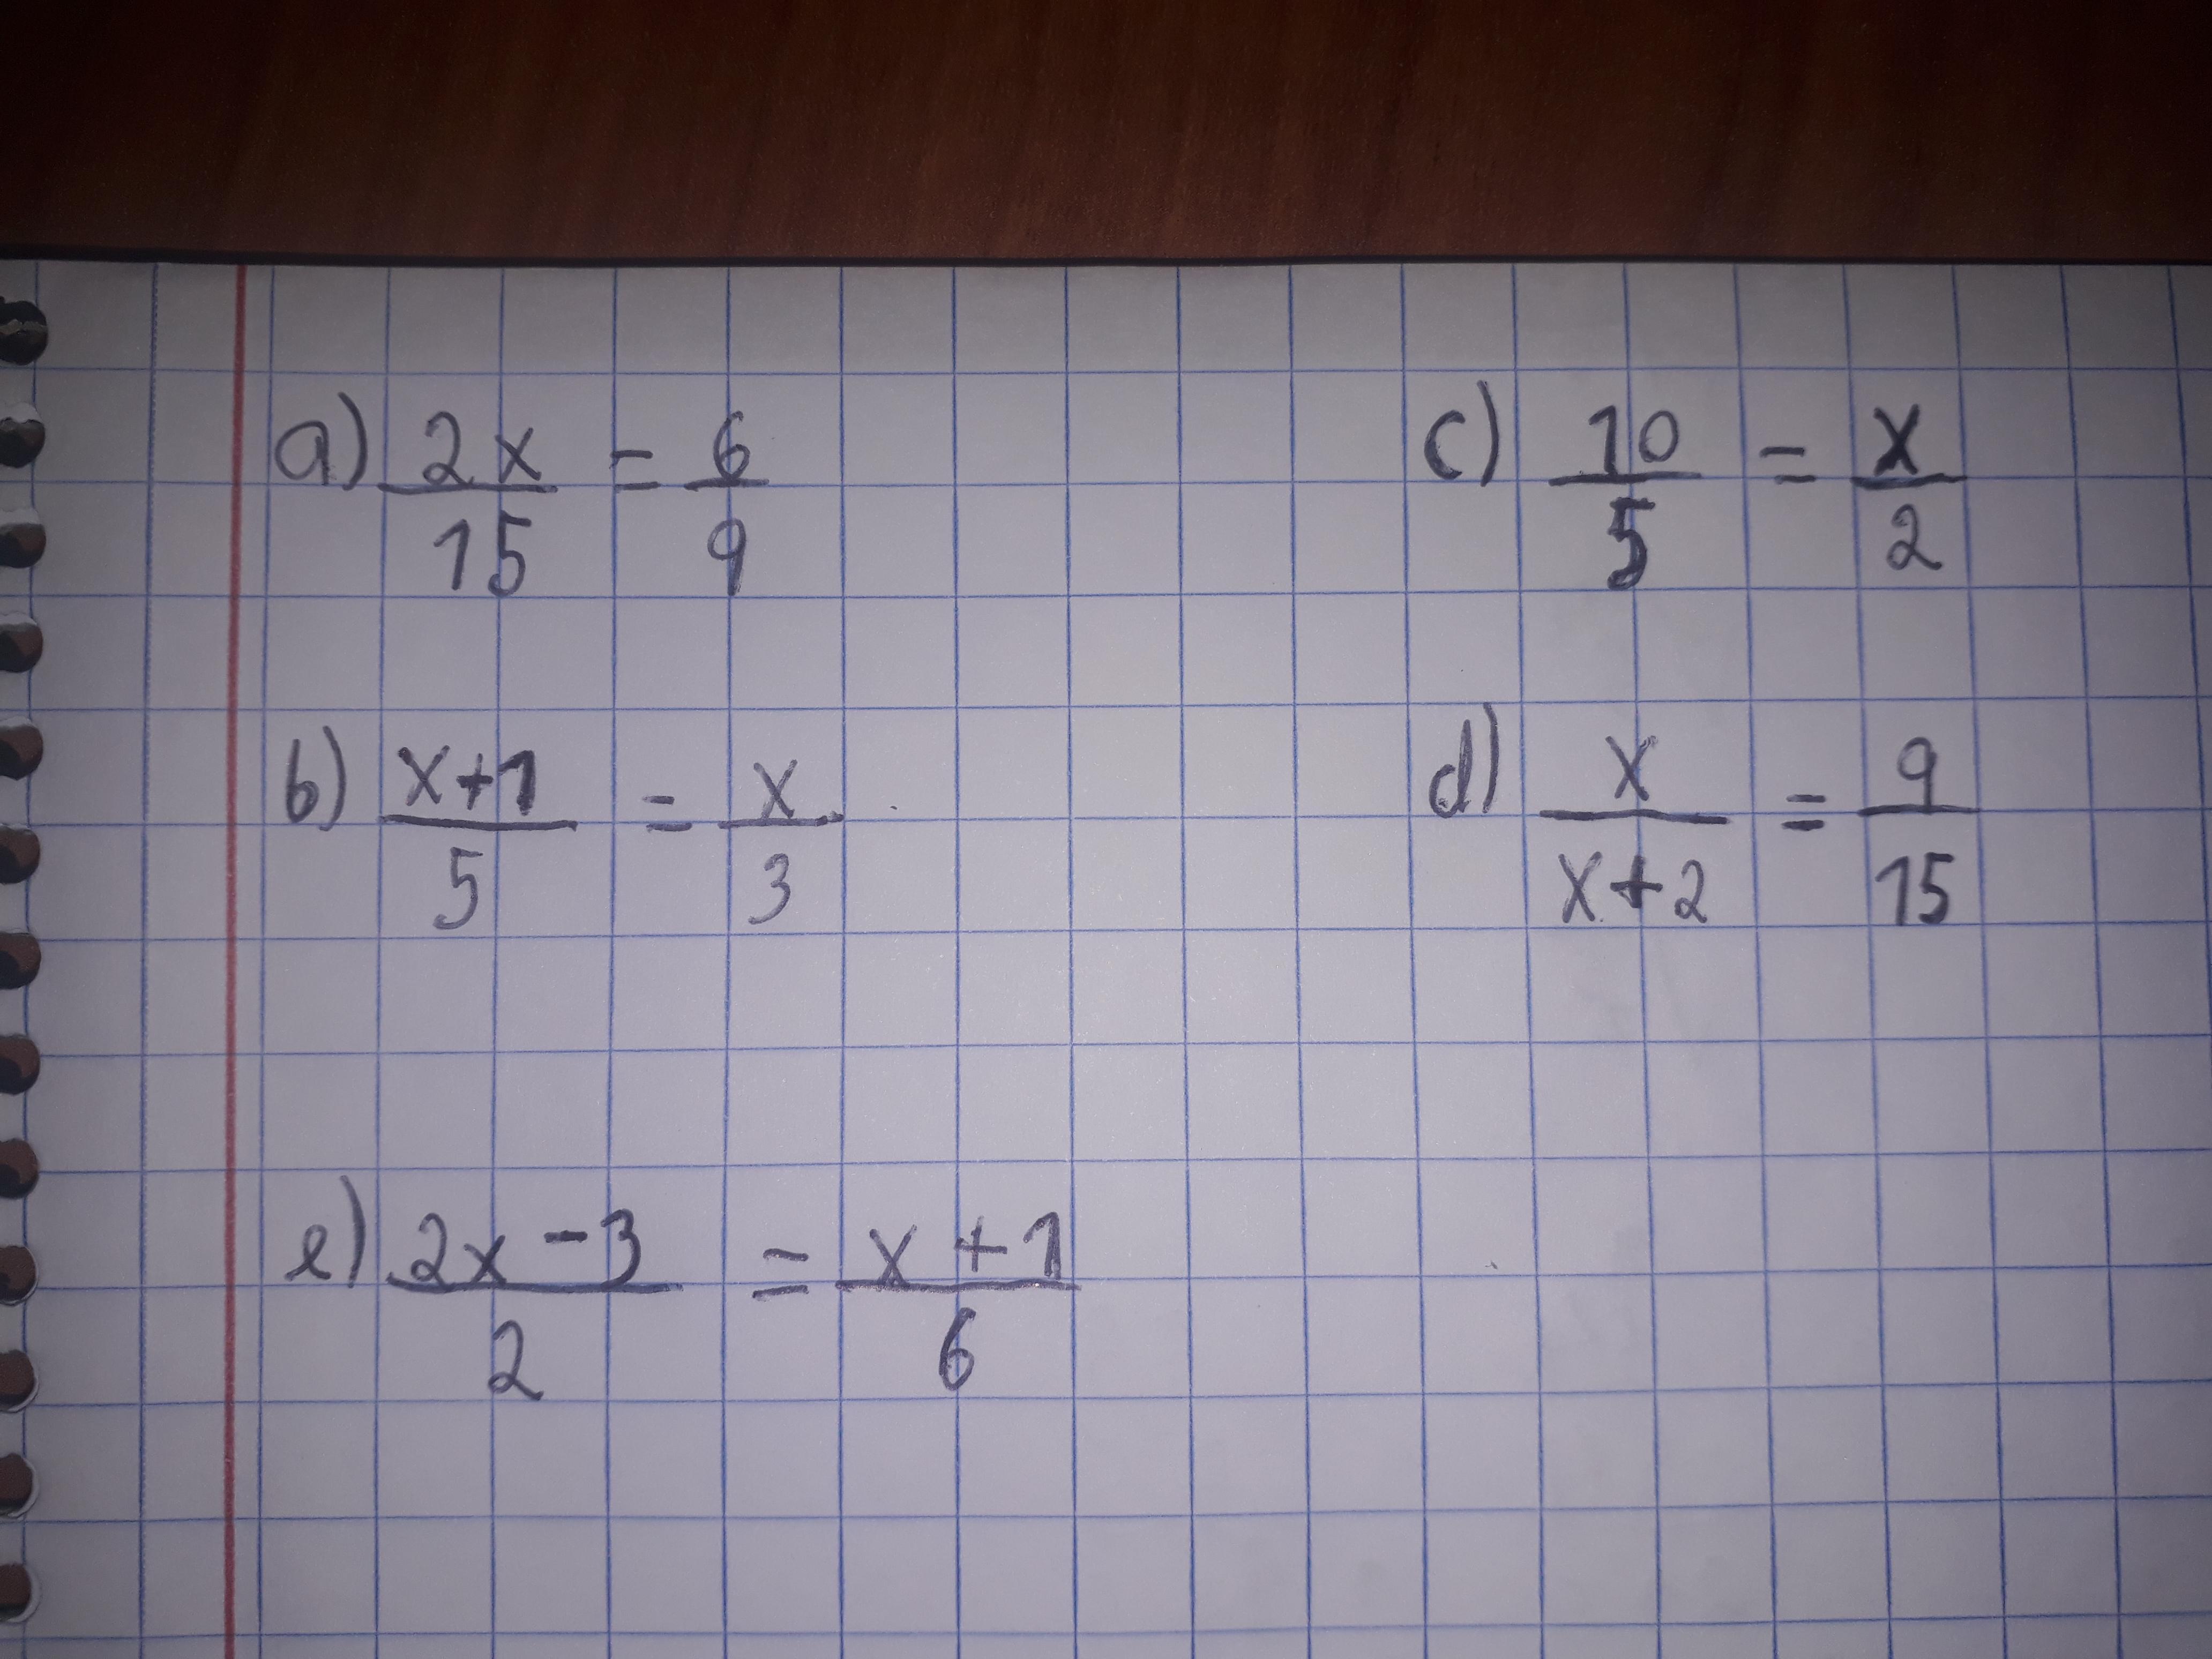 a) 2x/15 = 6/9
c) 10/5 = x/2
b) x+1/5 = x/3
d) x/x+2 = 9/15
e) 2x-3/2 = x+1/6